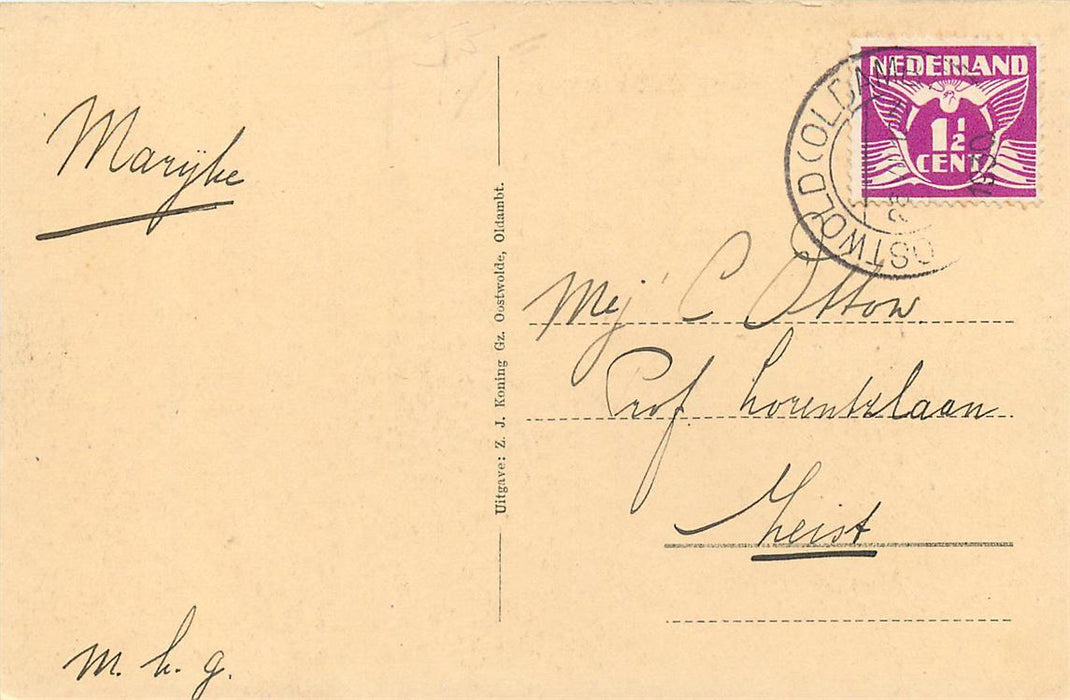 Marijke
m. h. g.
Uitgave: Z. J. Koning Gz. Oostwolde, Oldambt.
NEDERLAND
1½
CENT
OOSTWOLD (OLDAMBT)
1930
Mej C Ottow
Prof. Lorentzlaan
Zeist